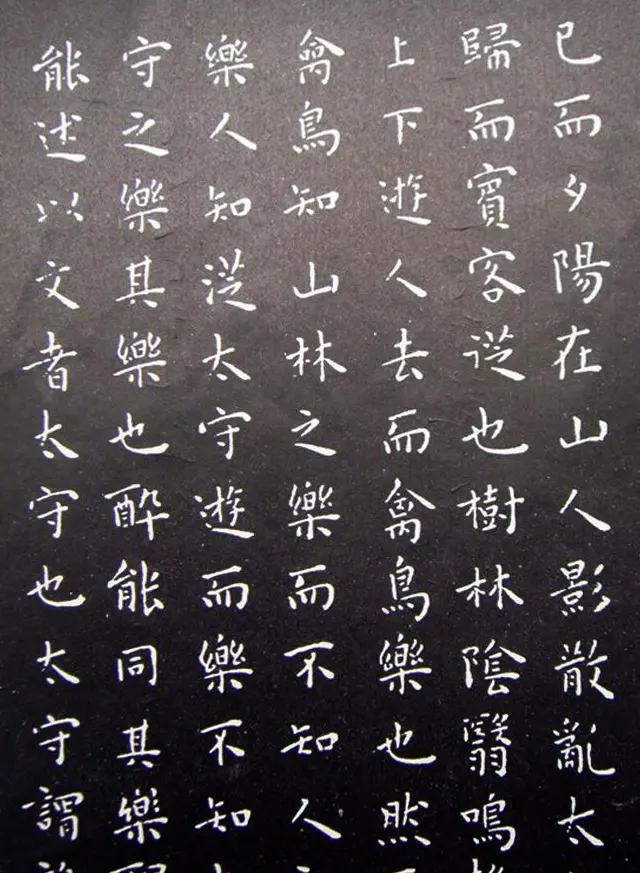 已而夕陽在山人影散亂太
歸而賓客從也樹林陰翳鳴
上下遊人去而禽鳥樂也然
禽鳥知山林之樂而不知人
樂人知從太守遊而樂不知
守之樂其樂也醉能同其樂
能述以文者太守也太守謂